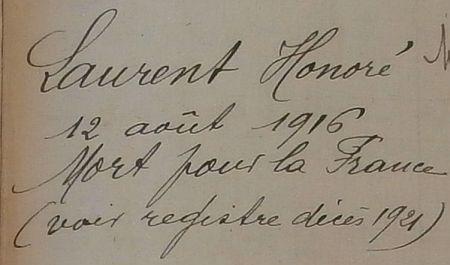 Laurent Honoré
12 août 1916
Mort pour la France
(voir registre décès 1921)